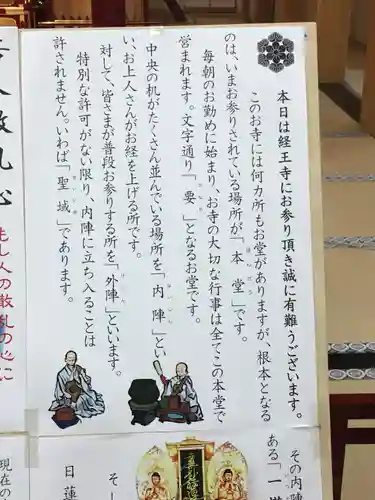 本日は経王寺にお参り頂き誠に有難うございます。
このお寺には何カ所もお堂がありますが、根本となる
のは、いまお参りされている場所が「本堂」です。
毎朝のお勤めに始まり、お寺の大切な行事は全てこの本堂で
営まれます。文字通り「要」となるお堂です。
中央の机がたくさん並んでいる場所を「内陣」とい
い、お上人さんがお経を上げる所です。
対して、皆さまが普段お参りする所を「外陣」といいます。
特別な許可がない限り、内陣に立ち入ることは
許されません。いわば「聖域」であります。
人散乱心
もし人の散乱の心に
その内陣
ある「一
そ
日蓮
現在の